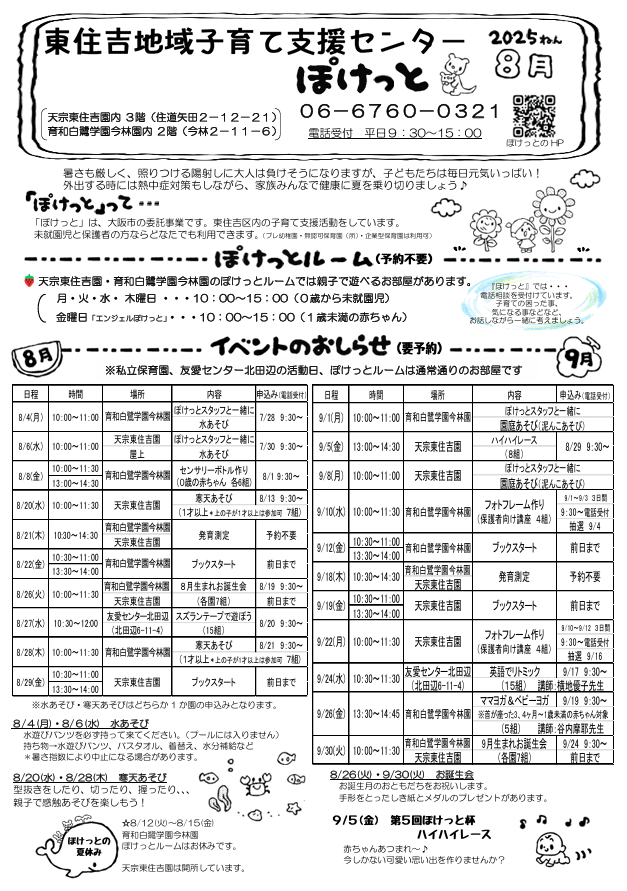 東住吉地域子育て支援センター
ぽけっと
2025ねん
8月
天宗東住吉園内 3階（住道矢田2－12－21）
育和白鷺学園今林園内 2階（今林2－11－6）
06－6760－0321
電話受付　平日9：30～15：00
ぽけっとのHP
暑さも厳しく、照りつける陽射しに大人は負けそうになりますが、子どもたちは毎日元気いっぱい！
外出する時には熱中症対策もしながら、家族みんなで健康に夏を乗り切りましょう♪
「ぽけっと」って・・・
「ぽけっと」は、大阪市の委託事業です。東住吉区内の子育て支援活動をしています。
未就園児と保護者の方ならどなたでも利用できます。（プレ幼稚園・無認可保育園（所）・企業型保育園は利用可）
ぽけっとルーム（予約不要）
天宗東住吉園・育和白鷺学園今林園のぽけっとルームでは親子で遊べるお部屋があります。
月・火・水・ 木曜日 ・・・10：00～15：00（0歳から未就園児）
金曜日「エンジェルぽけっと」・・・10：00～15：00（1歳未満の赤ちゃん）
『ぽけっと』では・・・
電話相談を受付けています。
子育ての困った事、
気になる事などなど、
お話しながら一緒に考えましょう。
8月
イベントのおしらせ（要予約）
9月
※私立保育園、友愛センター北田辺の活動日、ぽけっとルームは通常通りのお部屋です
日程 時間 場所 内容 申込み(電話受付)
8/4(月) 10:00～11:00 育和白鷺学園今林園 ぽけっとスタッフと一緒に 水あそび 7/28 9:30～
8/6(水) 10:00～11:00 天宗東住吉園 屋上 ぽけっとスタッフと一緒に 水あそび 7/30 9:30～
8/8(金) 10:00～11:30 13:00～14:30 育和白鷺学園今林園 センサリーボトル作り （0歳の赤ちゃん 各6組） 8/1 9:30～
8/20(水) 10:00～11:30 天宗東住吉園 寒天あそび （1才以上＊上の子が1才以上は参加可 7組） 8/13 9:30～ (電話受付)
8/21(木) 10:30～14:30 育和白鷺学園今林園 天宗東住吉園 発育測定 予約不要
8/22(金) 10:30～11:00 13:30～14:00 育和白鷺学園今林園 ブックスタート 前日まで
8/26(火) 10:00～11:30 育和白鷺学園今林園 天宗東住吉園 8月生まれお誕生会 （各園7組） 8/19 9:30～ 前日まで
8/27(水) 10:30～12:00 友愛センター北田辺 (北田辺6-11-4) スズランテープで遊ぼう （15組） 8/20 9:30～
8/28(木) 10:00～11:30 育和白鷺学園今林園 寒天あそび （1才以上＊上の子が1才以上は参加可 7組） 8/21 9:30～ (電話受付)
8/29(金) 10:30～11:00 13:30～14:00 天宗東住吉園 ブックスタート 前日まで
※水あそび・寒天あそびはどちらか1か園の申込みとなります。
日程 時間 場所 内容 申込み(電話受付)
9/1(月) 10:00～11:00 育和白鷺学園今林園 ぽけっとスタッフと一緒に 園庭あそび(泥んこあそび)
9/5(金) 13:00～14:30 天宗東住吉園 ハイハイレース （8組） 8/29 9:30～
9/8(月) 10:00～11:00 天宗東住吉園 ぽけっとスタッフと一緒に 園庭あそび(泥んこあそび)
9/10(水) 10:00～11:30 育和白鷺学園今林園 フォトフレーム作り （保護者向け講座 4組） 9/1～9/3 3日間 9:30～電話受付 抽選 9/4
9/12(金) 10:30～11:00 13:30～14:00 育和白鷺学園今林園 ブックスタート 前日まで
9/18(木) 10:30～14:30 育和白鷺学園今林園 天宗東住吉園 発育測定 予約不要
9/19(金) 10:30～11:00 13:30～14:00 天宗東住吉園 ブックスタート 前日まで
9/22(月) 10:00～11:30 天宗東住吉園 フォトフレーム作り （保護者向け講座 4組） 9/10～9/12 3日間 9:30～電話受付 抽選 9/16
9/24(水) 10:30～11:30 友愛センター北田辺 (北田辺6-11-4) 英語でリトミック （15組） 講師:横地優子先生 9/17 9:30～
9/26(金) 13:30～14:45 育和白鷺学園今林園 ママヨガ＆ベビーヨガ ※首が座った3、4ヶ月～1歳未満の赤ちゃん対象 （5組） 講師:谷内摩耶先生 9/19 9:30～
9/30(火) 10:00～11:30 育和白鷺学園今林園 天宗東住吉園 9月生まれお誕生会 （各園7組） 9/24 9:30～ 前日まで
8/4(月)・8/6(水)　水あそび
水遊びパンツを必ず持って来てください。（プールには入りません）
持ち物→水遊びパンツ、バスタオル、着替え、水分補給など
＊暑さ指数により中止になる場合があります。
8/20(水)・8/28(木)　寒天あそび
型抜きをしたり、切ったり、握ったり、、、
親子で感触あそびを楽しもう！
ぽけっとの
夏休み
☆8/12(火)～8/15(金)
育和白鷺学園今林園
ぽけっとルームはお休みです。
天宗東住吉園は開所しています。
8/26(火)・9/30(火)　お誕生会
お誕生月のおともだちをお祝いします。
手形をとったしき紙とメダルのプレゼントがあります。
9/5(金)　第5回ぽけっと杯
ハイハイレース
赤ちゃんあつまれ～♪
今しかない可愛い思い出を作りませんか？